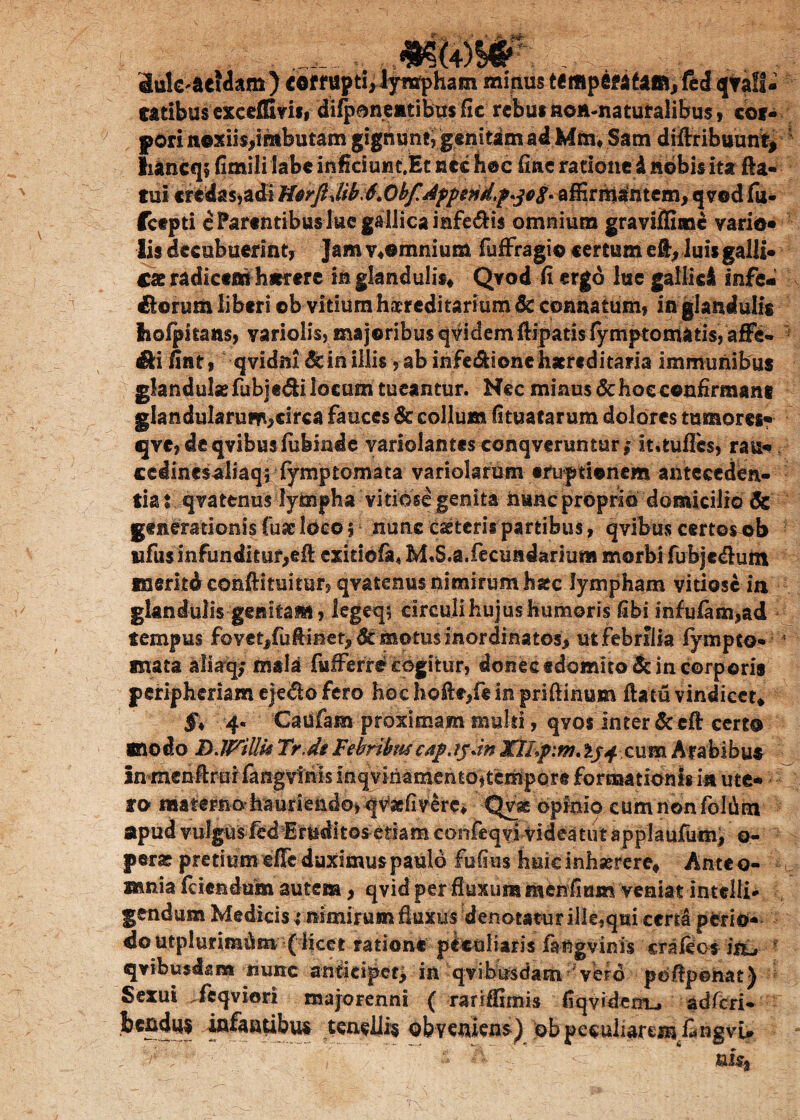 (4)
dulc-acidam) corrupti, lympham minus temperatam, sed qvali-
tatibus excessivis, disponentibus sic rebus non-naturalibus, cor-
pori noxiis, imbutam gignunt, genitam ad Mm. Sam distribuunt,
hancq; simili labe inficiunt. Et nec hoc sine ratione à nobis ita sta-
tui credas, adi Horst. lib. 6. Obs. Append. p. 308. affirmantem, qvod su-
scepti è Parentibus lue gallica infectis omnium gravissimè vario-
lis decubuerint, Jam v. omnium suffragio certum est, luis galli-
cæ radicem hærere in glandulis. Qvod si ergò lue gallicâ infe-
ctorum liberi ob vitium hæreditarium & connatum, in glandulis
hospitans, variolis, majoribus qvidem stipatis symptomatis, affe-
cti sint, qvidni & in illis, ab infectione hæreditaria immunibus
glandulæ subjecti locum tueantur. Nec minus & hoc confirmant
glandularum, circa fauces & collum situatarum dolores tumores-
qve, de qvibus subinde variolantes conqveruntur; it. tusses, rau-
cedines aliaq; symptomata variolarum eruptionem anteceden-
tia: qvatenus lympha vitiosè genita nunc proprio domicilio &
generationis suæ loco; nunc cæteris partibus, qvibus certos ob
usus infunditur, est exitiosa. M.S.a. secundarium morbi subjectum
meritò constituitur, qvatenus nimirum hæc lympham vitiosè in
glandulis genitam, legeq; circuli hujus humoris sibi infusam, ad
tempus fovet, sustinet, & motus inordinatos, ut febrilia sympto-
mata aliaq; mala sufferre cogitur, donec edomito & in corporis
peripheriam ejecto fero hoc hoste, se in pristinum statû vindicet.
§. 4. Causam proximam multi, qvos inter & est certo
modo D. Willis Tr. de Febribus cap. 15. in XII. p. m. 254 cum Arabibus
in menstrui sangvinis inqvinamento, tempore formationis in ute-
ro materno hauriendo, qvæsivêre. Qvæ opinio cum non solùm
apud vulgus sed Eruditos etiam conseqvi videatur applausum, o-
peræ pretium esse duximus paulò fusius huic inhærere. Ante o-
mnia sciendum autem, qvid per fluxum mensium veniat intelli-
gendum Medicis; nimirum fluxus denotatur ille, qui certâ perio-
do ut plurimùm (licet ratione peculiaris sangvinis cráseos in
qvibusdam nunc anticipet, in qvibusdam verò postponat)
Sexui seqviori majorenni ( rarissimis siqvidem adscri-
bendus infantibus tenellis obveniens) ob peculiarem sangvi-
nis,